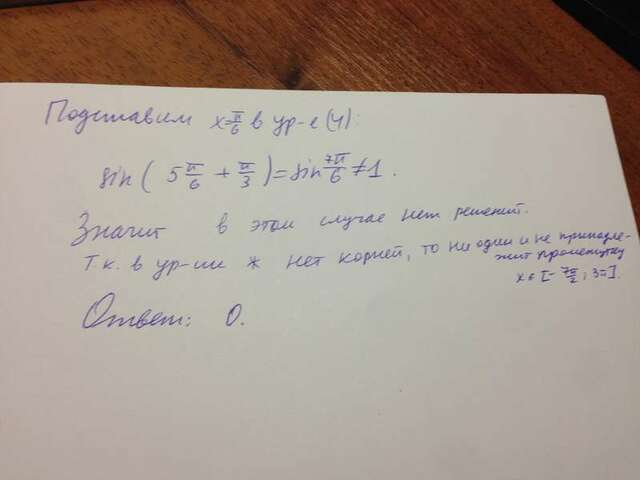 Подставим x=π/6 в ур-е (4):
sin ( 5 π/6 + π/3 ) = sin 7π/6 ≠ 1.
Значит в этом случае нет решений.
Т к. в ур-ии * нет корней, то ни один и не принадле-
жит промежутку
x ∈ [- 7π/2 ; 3π].
Ответ: 0.